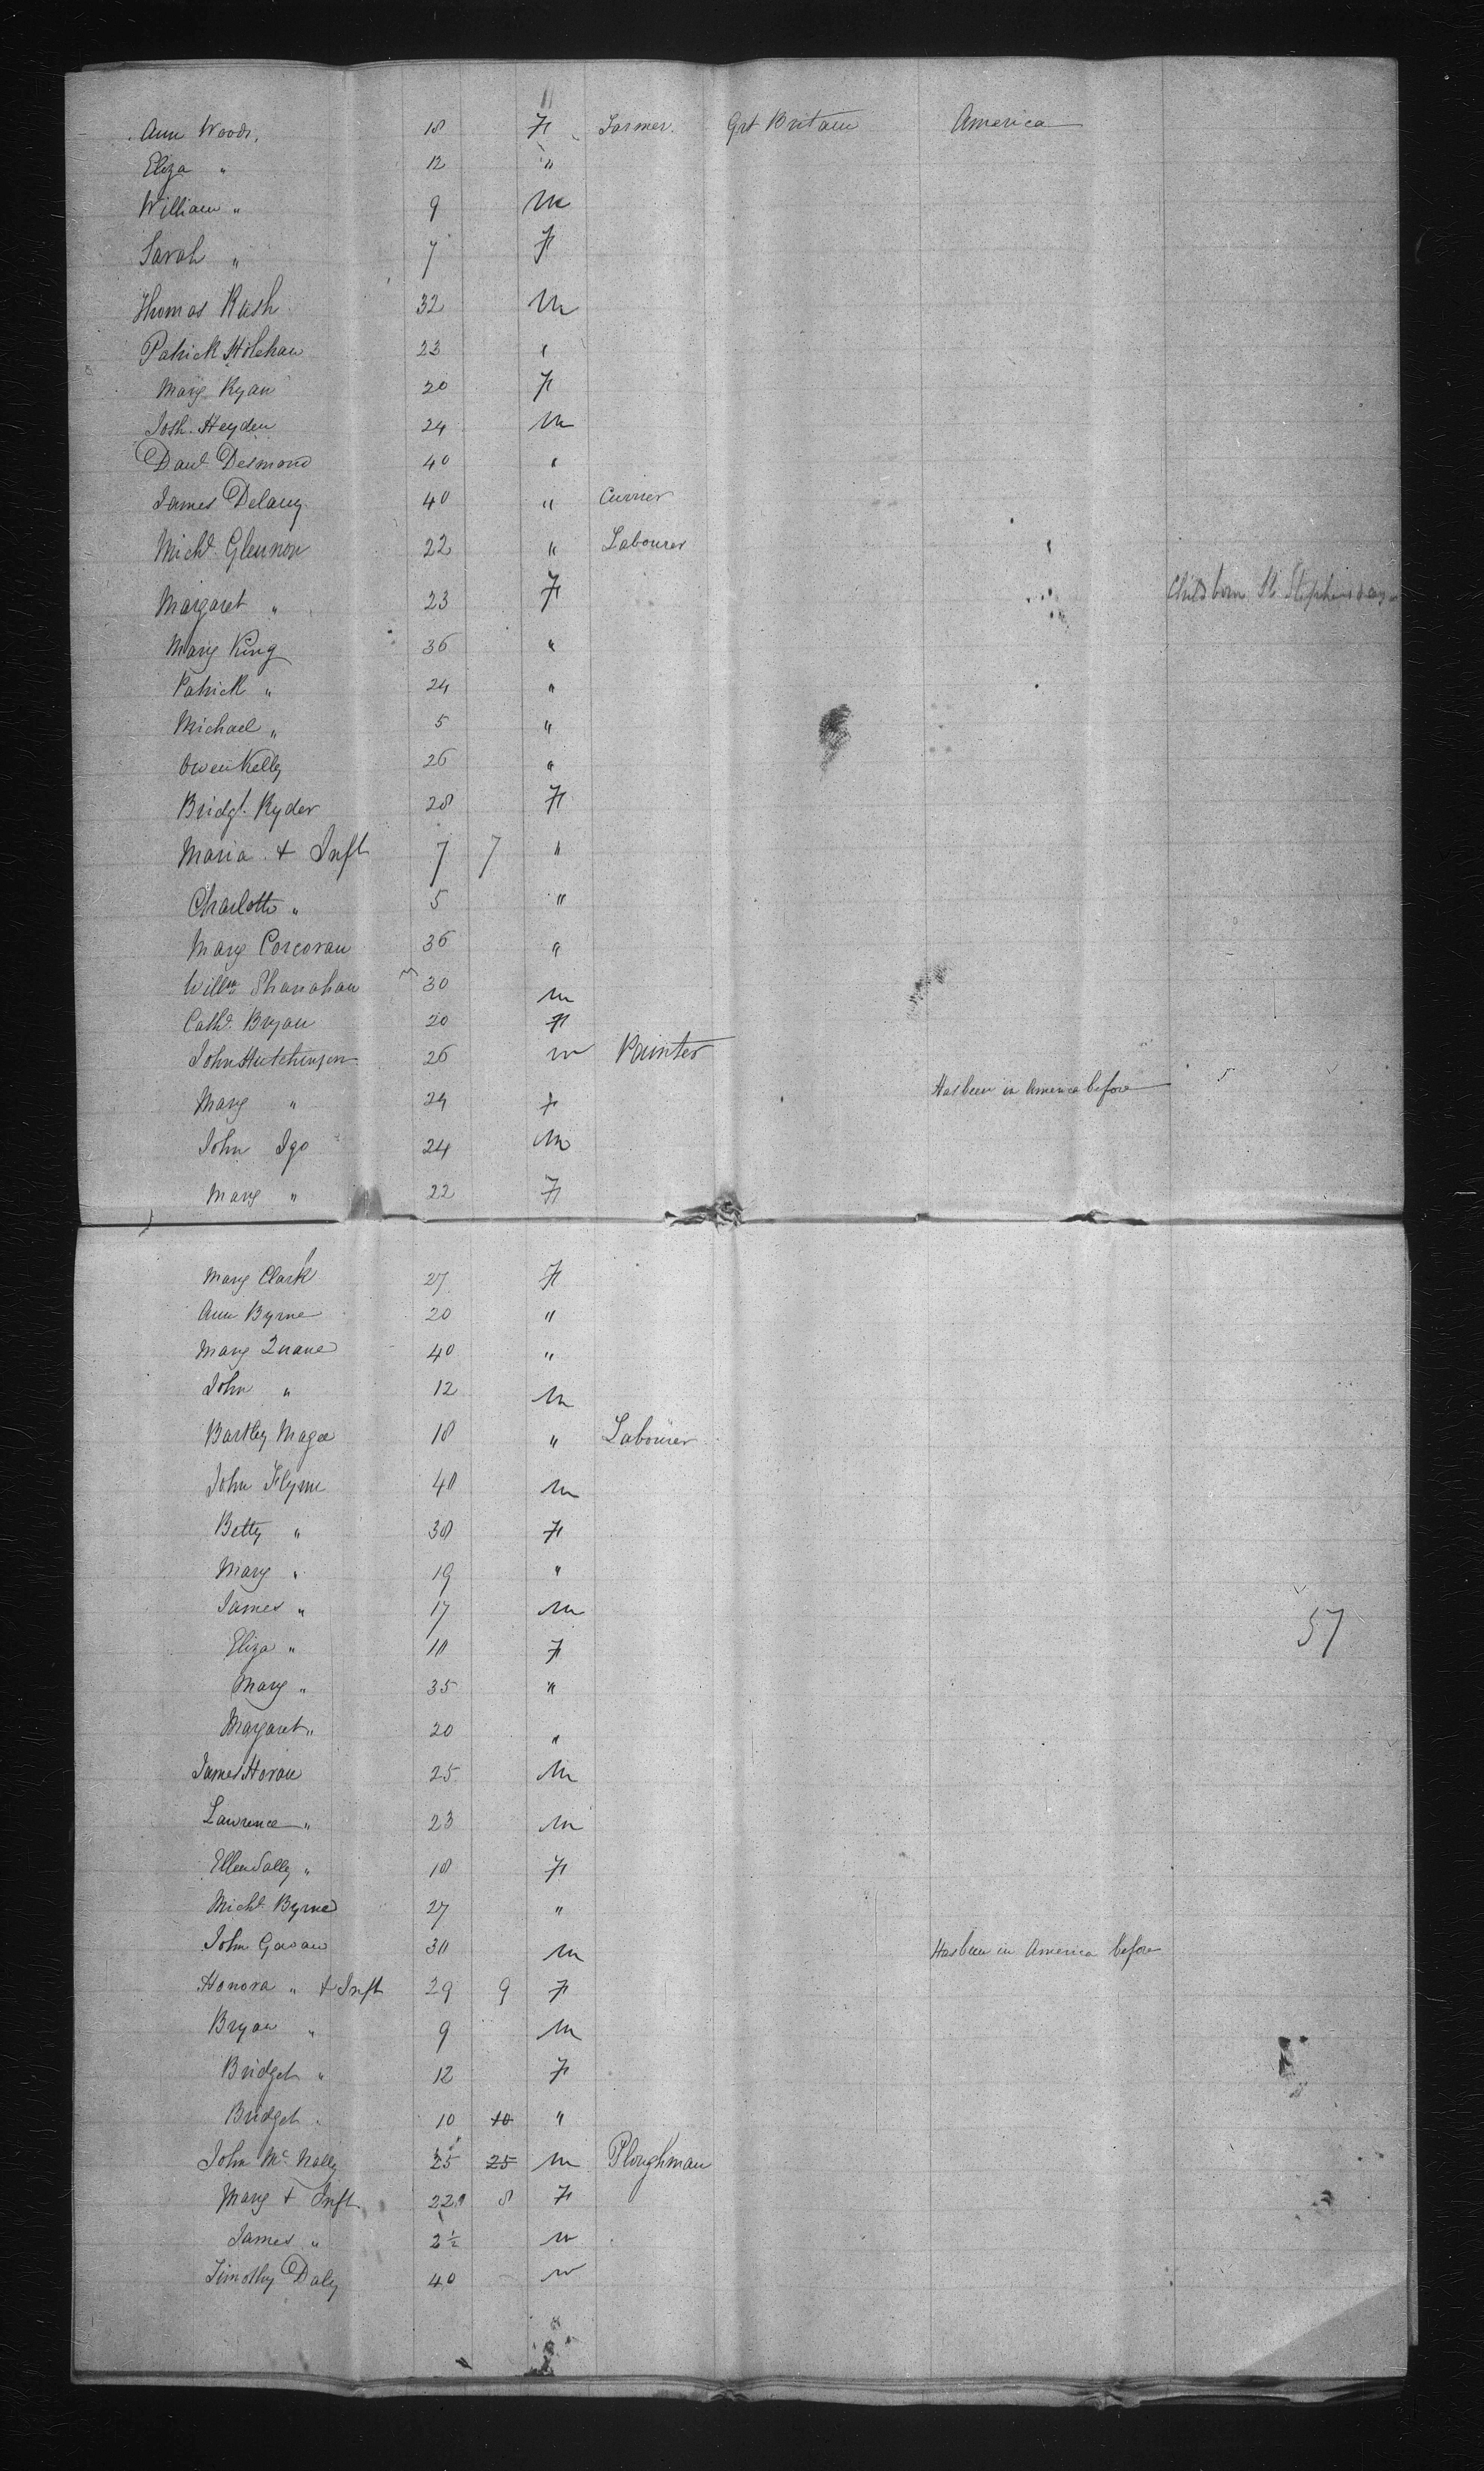 Ann Woods, 18 F Farmer. Grt Britain America
Eliza " 12 "
William " 9 M
Sarah " 7 F
Thomas Rush 32 M
Patrick Holehan 23 "
Mary Ryan 20 F
Josh. Heyden 24 M
Danl. Desmond 40 "
James Delany 40 " Currier
Michl. Glennon 22 " Labourer
Margaret " 23 F Child born St Stephens day
Mary King 36 "
Patrick " 24 "
Michael " 5 "
Owen Kelly 26 "
Bridgt. Ryder 28 F
Maria + Inft 7 7 "
Charlotte " 5 "
Mary Corcoran 36 "
Willm Shanahan 30 M
Cathe. Bryan 20 F
John Hutchinson 26 M Painter
Mary " 24 F Has been in America before
John Igo 24 M
Mary " 22 F
Mary Clark 27 F
Ann Byrne 20 "
Mary Quane 40 "
John " 12 M
Bartley Magee 18 " Labourer
John Flynn 40 M
Betty " 38 F
Mary " 19 "
James " 17 M
Eliza " 10 F 57
Mary " 35 "
Margaret " 20 "
James Horan 25 M
Lawrence " 23 M
Ellen Sally " 18 F
Michl. Byrne 27 "
John Gavan 30 M Has been in America before
Honora " + Inft 29 9 F
Bryan " 9 M
Bridget " 12 F
Bridget " 10 10 "
John Mc Nally 25 25 M Ploughman
Mary + Inft. 22 8 F
James " 2½ M
Timothy Daly 40 M